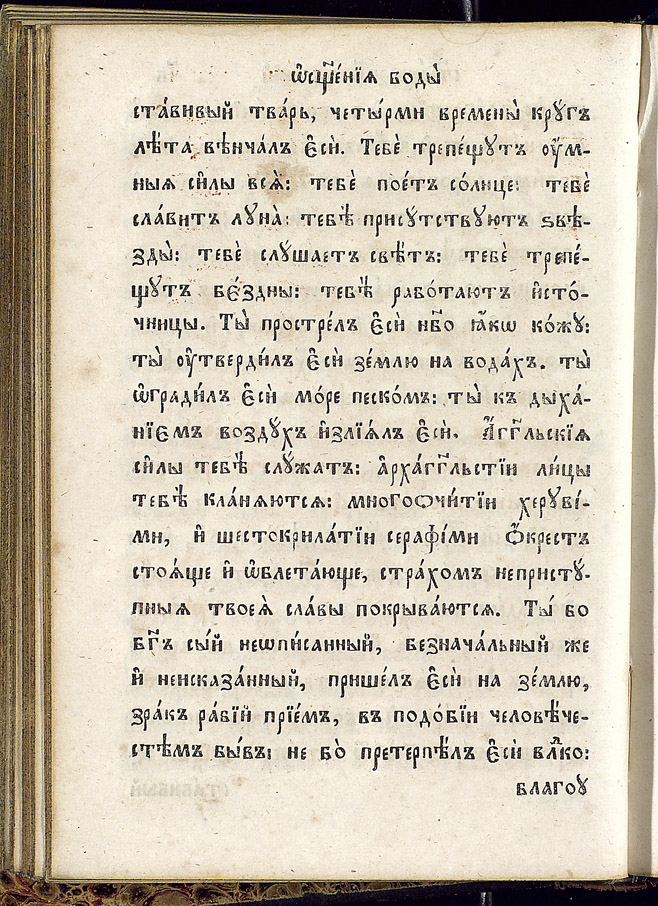 ѡ҆сщ҃е́нїѧ воды̀
ста́вивый тва́рь, четы́рми времены̀ крꙋгъ
лѣ́та вѣнча́лъ є҆сѝ. Тебѐ трепе́щꙋтъ ᲂу҆́м-
ныѧ си̑лы всѧ̑: тебѐ пое́тъ со́лнце: тебѐ
сла́витъ лꙋна̀: тебѣ̀ присꙋ́тствꙋютъ ѕвѣ́-
зды̀: тебѐ слꙋ́шаетъ свѣ́тъ: тебѐ трепе́-
щꙋтъ бє́здны: тебѣ̀ рабо́таютъ и҆сто́-
чницы. Ты̀ простре́лъ є҆сѝ нб҃о ꙗ҆́кѡ ко́жꙋ:
ты̀ ᲂу҆тверди́лъ є҆сѝ зе́млю на вода́хъ. ты̀
ѡ҆гради́лъ є҆сѝ мо́ре песко́мъ: ты̀ къ дыха́-
нїємъ воздꙋхъ и҆злїѧ́лъ є҆сѝ. А҆́гг҃льскїѧ
си̑лы тебѣ̀ слꙋ́жатъ: а҆рха́гг҃льстїи ли́цы
тебѣ̀ кла́нѧютсѧ: многоꙫчи́тїи херꙋві́-
ми, и҆ шестокрила́тїи серафі́ми Ѻ҆́крестъ
стоѧ́ще и҆ ѡ҆блета́юще, стра́хомъ непристꙋ́-
пныѧ твоеѧ̀ сла́вы покрыва́ютсѧ. Ты́ бо
бг҃ъ сы́й неѡпи́санный, безнача́льный же
и҆ неисказа́нный, прише́лъ є҆сѝ на зе́млю,
зра́къ ра́бїй прїе́мъ, въ подо́бїи человѣ́че-
стѣмъ бы́въ: не бо̀ претерпѣ́лъ є҆сѝ влⷣко:
благоꙋ